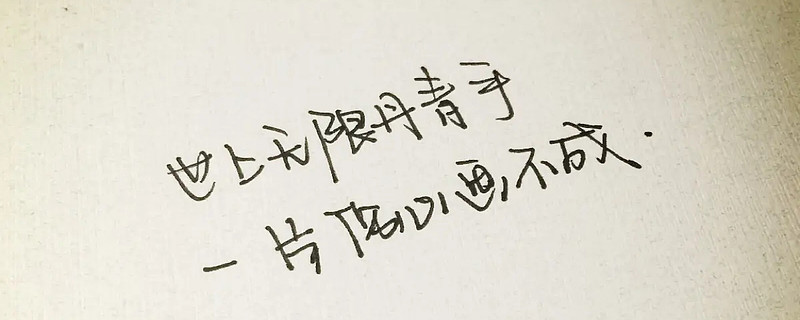 世上无限丹青手
一片伤心画不成.